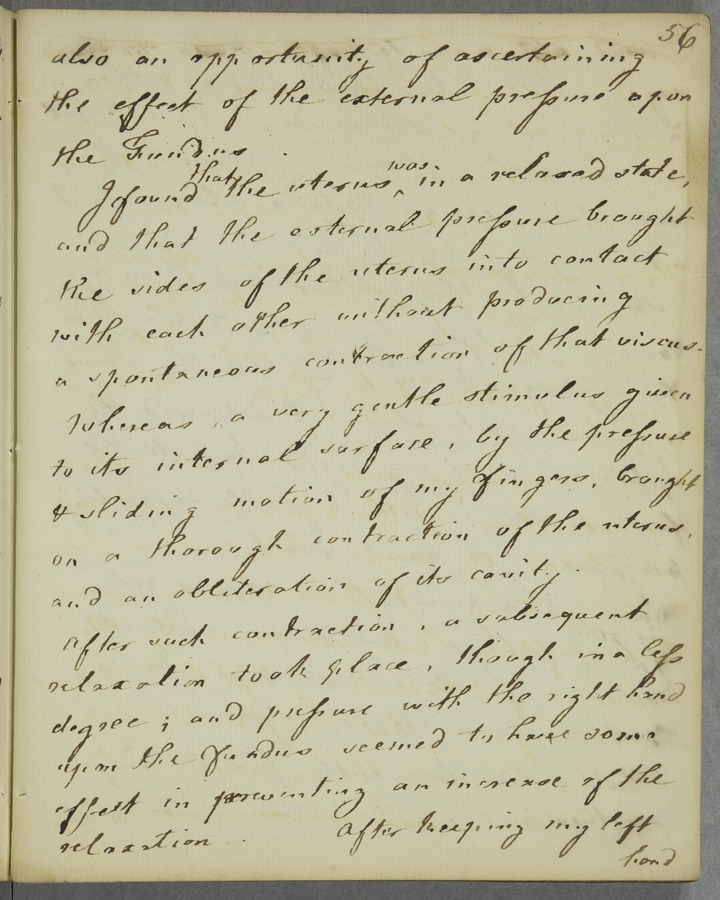 56
also an opportunity of ascertaining
the effect of the external pressure upon
the Fundus
I found that the uterus was in a relaxed state,
and that the external pressure brought
the sides of the uterus into contact
with each other without producing
a spontaneous contraction of that viscus.
Whereas a very gentle stimulus given
to its internal surface, by the pressure
& sliding motion of my fingers, brought
on a thorough contraction of the uterus,
and an obliteration of its cavity.
After such contraction, a subsequent
relaxation took place, though in a less
degree; and pressure with the right hand
upon the Fundus seemed to have some
effect in preventing an increase of the
relaxation. After keeping my left
hand